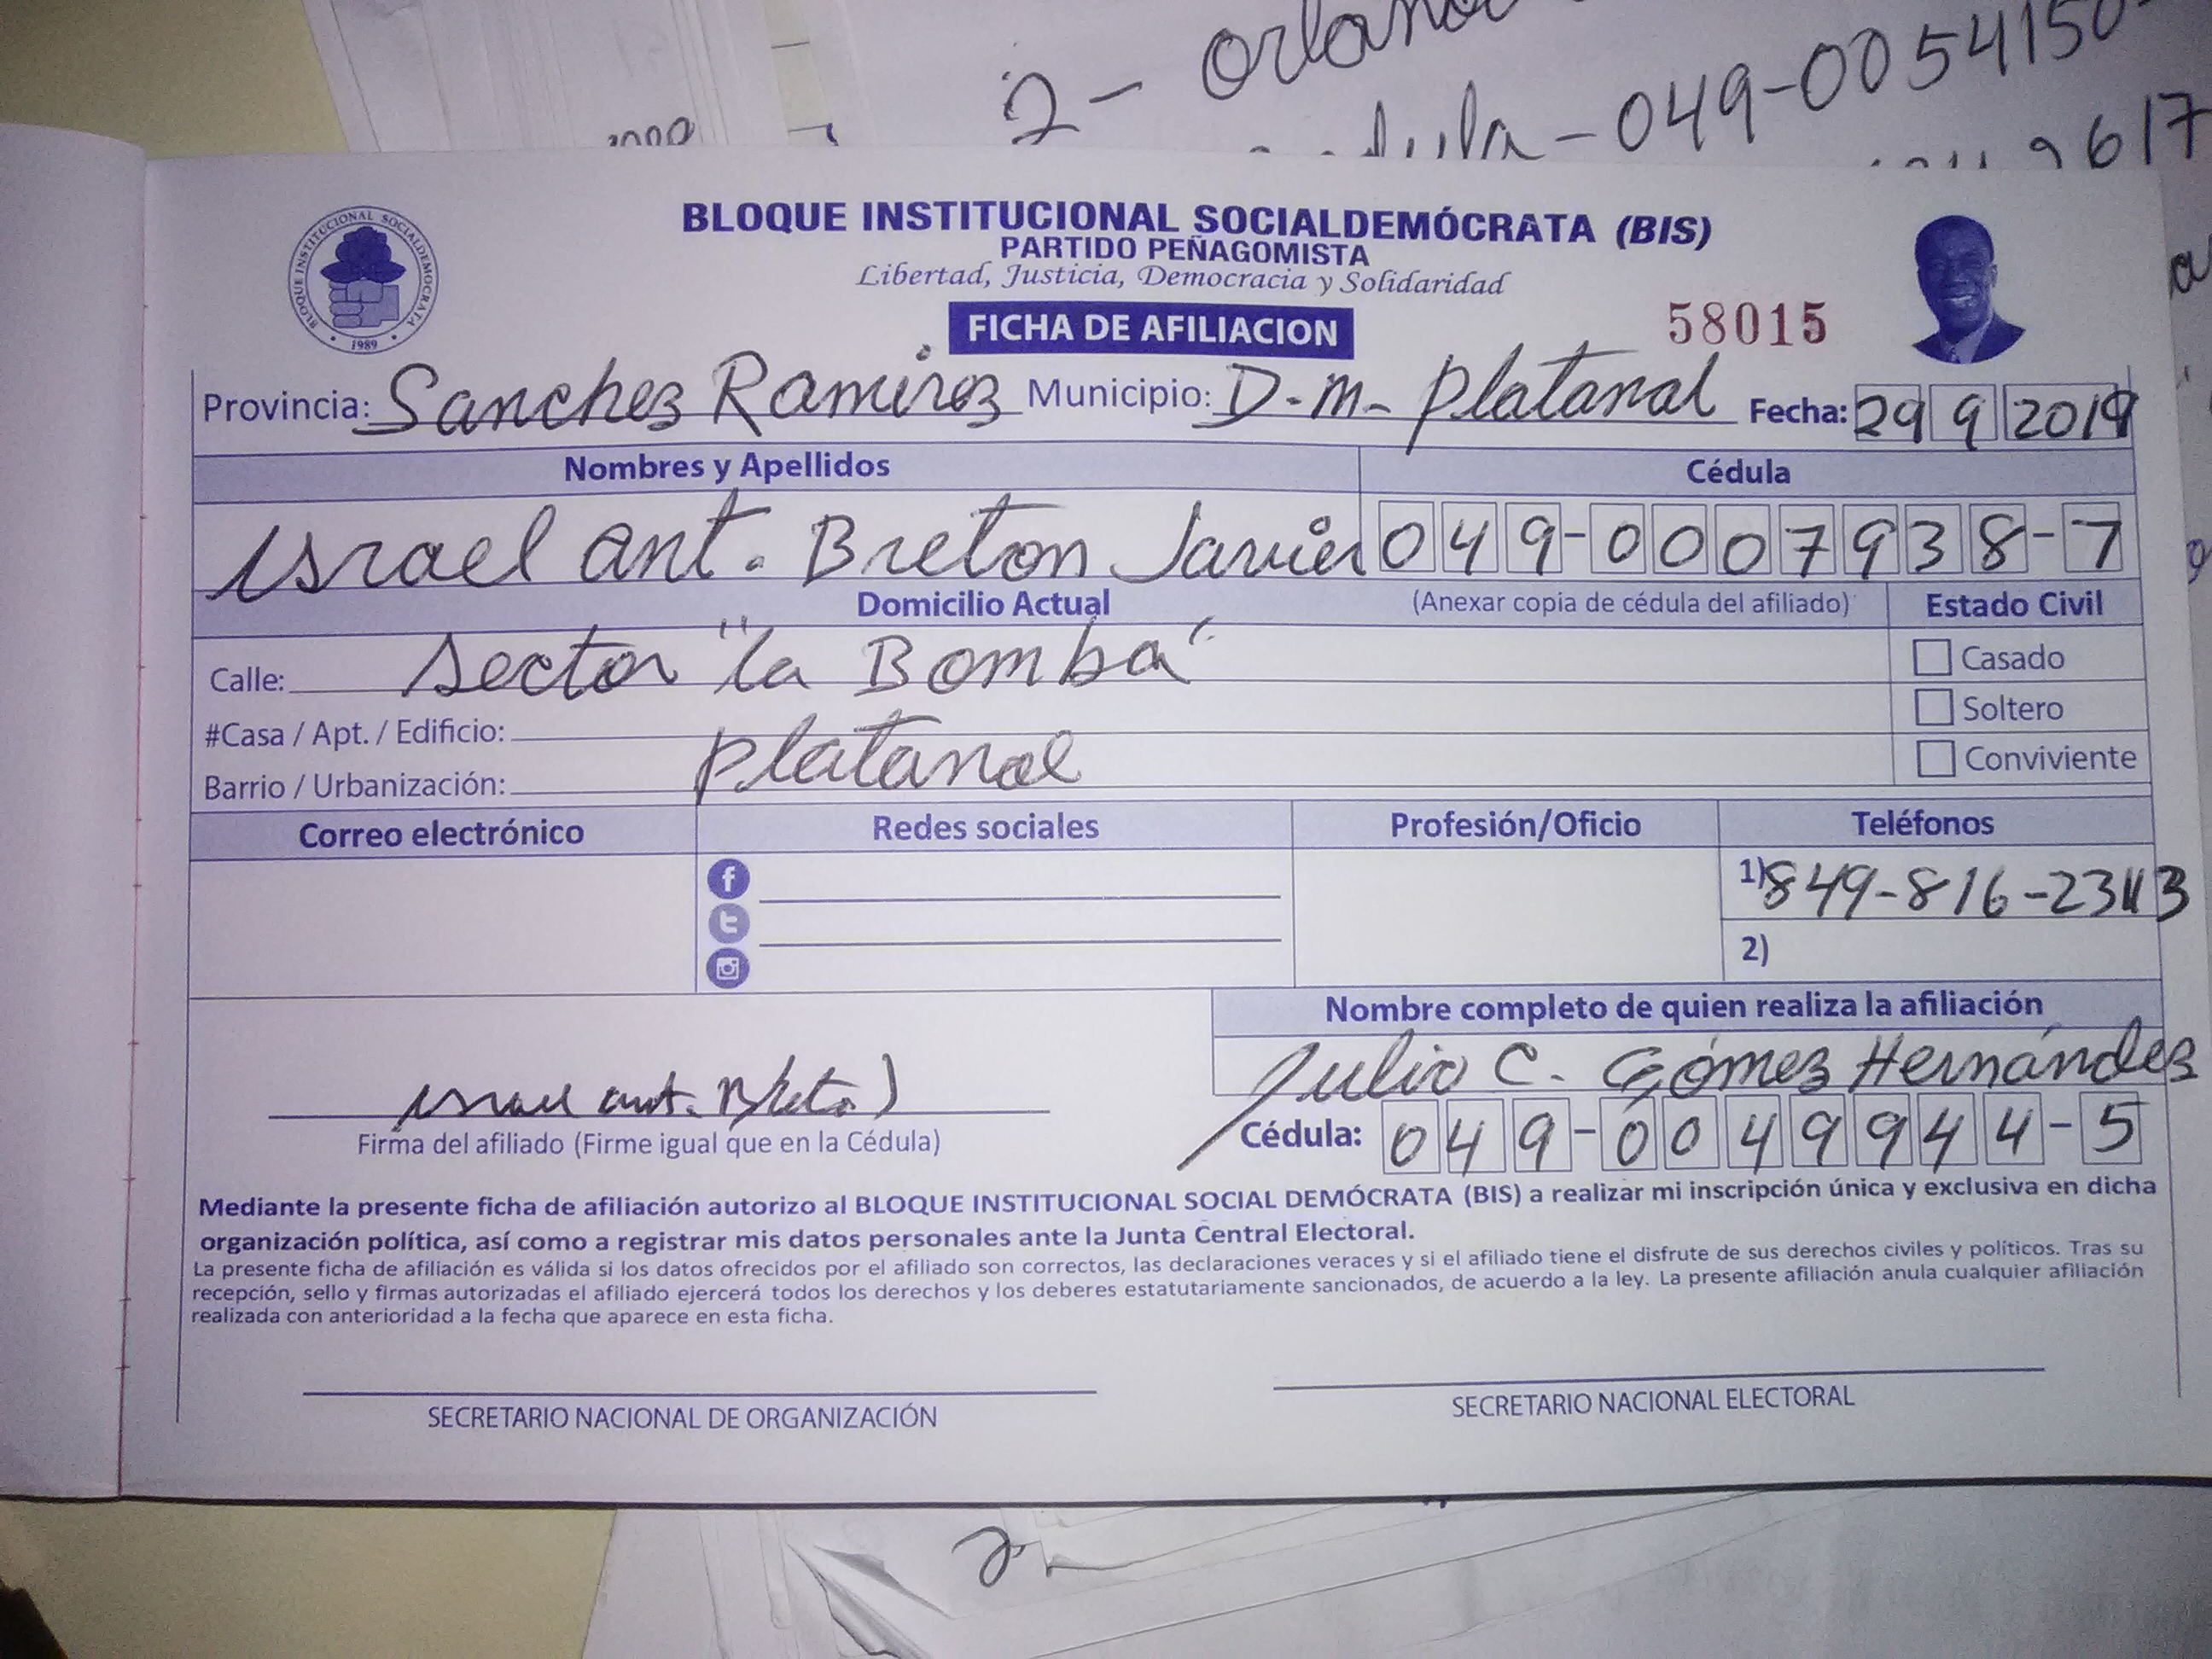 2- Orlan
dula-049-0054150-
9617
BLOQUE INSTITUCIONAL SOCIALDEMOCRATA
1989
BLOQUE INSTITUCIONAL SOCIALDEMÓCRATA (BIS)
PARTIDO PEÑAGOMISTA
Libertad, Justicia, Democracia y Solidaridad
FICHA DE AFILIACION
58015
Provincia: Sanchez Ramirez Municipio: D.M. Platanal Fecha: 29 9 2019
Nombres y Apellidos Cédula
Israel ant. Breton Javier 049-0007938-7
Domicilio Actual (Anexar copia de cédula del afiliado) Estado Civil
Calle: Sector "la Bomba" Casado
#Casa / Apt. / Edificio: Soltero
Barrio / Urbanización: Platanal Conviviente
Correo electrónico Redes sociales Profesión/Oficio Teléfonos
1) 849-816-2343
2)
Nombre completo de quien realiza la afiliación
Julio C. Gómez Hernández
Israel ant. Breton J
Firma del afiliado (Firme igual que en la Cédula) Cédula: 049-0049944-5
Mediante la presente ficha de afiliación autorizo al BLOQUE INSTITUCIONAL SOCIAL DEMÓCRATA (BIS) a realizar mi inscripción única y exclusiva en dicha
organización política, así como a registrar mis datos personales ante la Junta Central Electoral.
La presente ficha de afiliación es válida si los datos ofrecidos por el afiliado son correctos, las declaraciones veraces y si el afiliado tiene el disfrute de sus derechos civiles y políticos. Tras su
recepción, sello y firmas autorizadas el afiliado ejercerá todos los derechos y los deberes estatutariamente sancionados, de acuerdo a la ley. La presente afiliación anula cualquier afiliación
realizada con anterioridad a la fecha que aparece en esta ficha.
SECRETARIO NACIONAL DE ORGANIZACIÓN SECRETARIO NACIONAL ELECTORAL